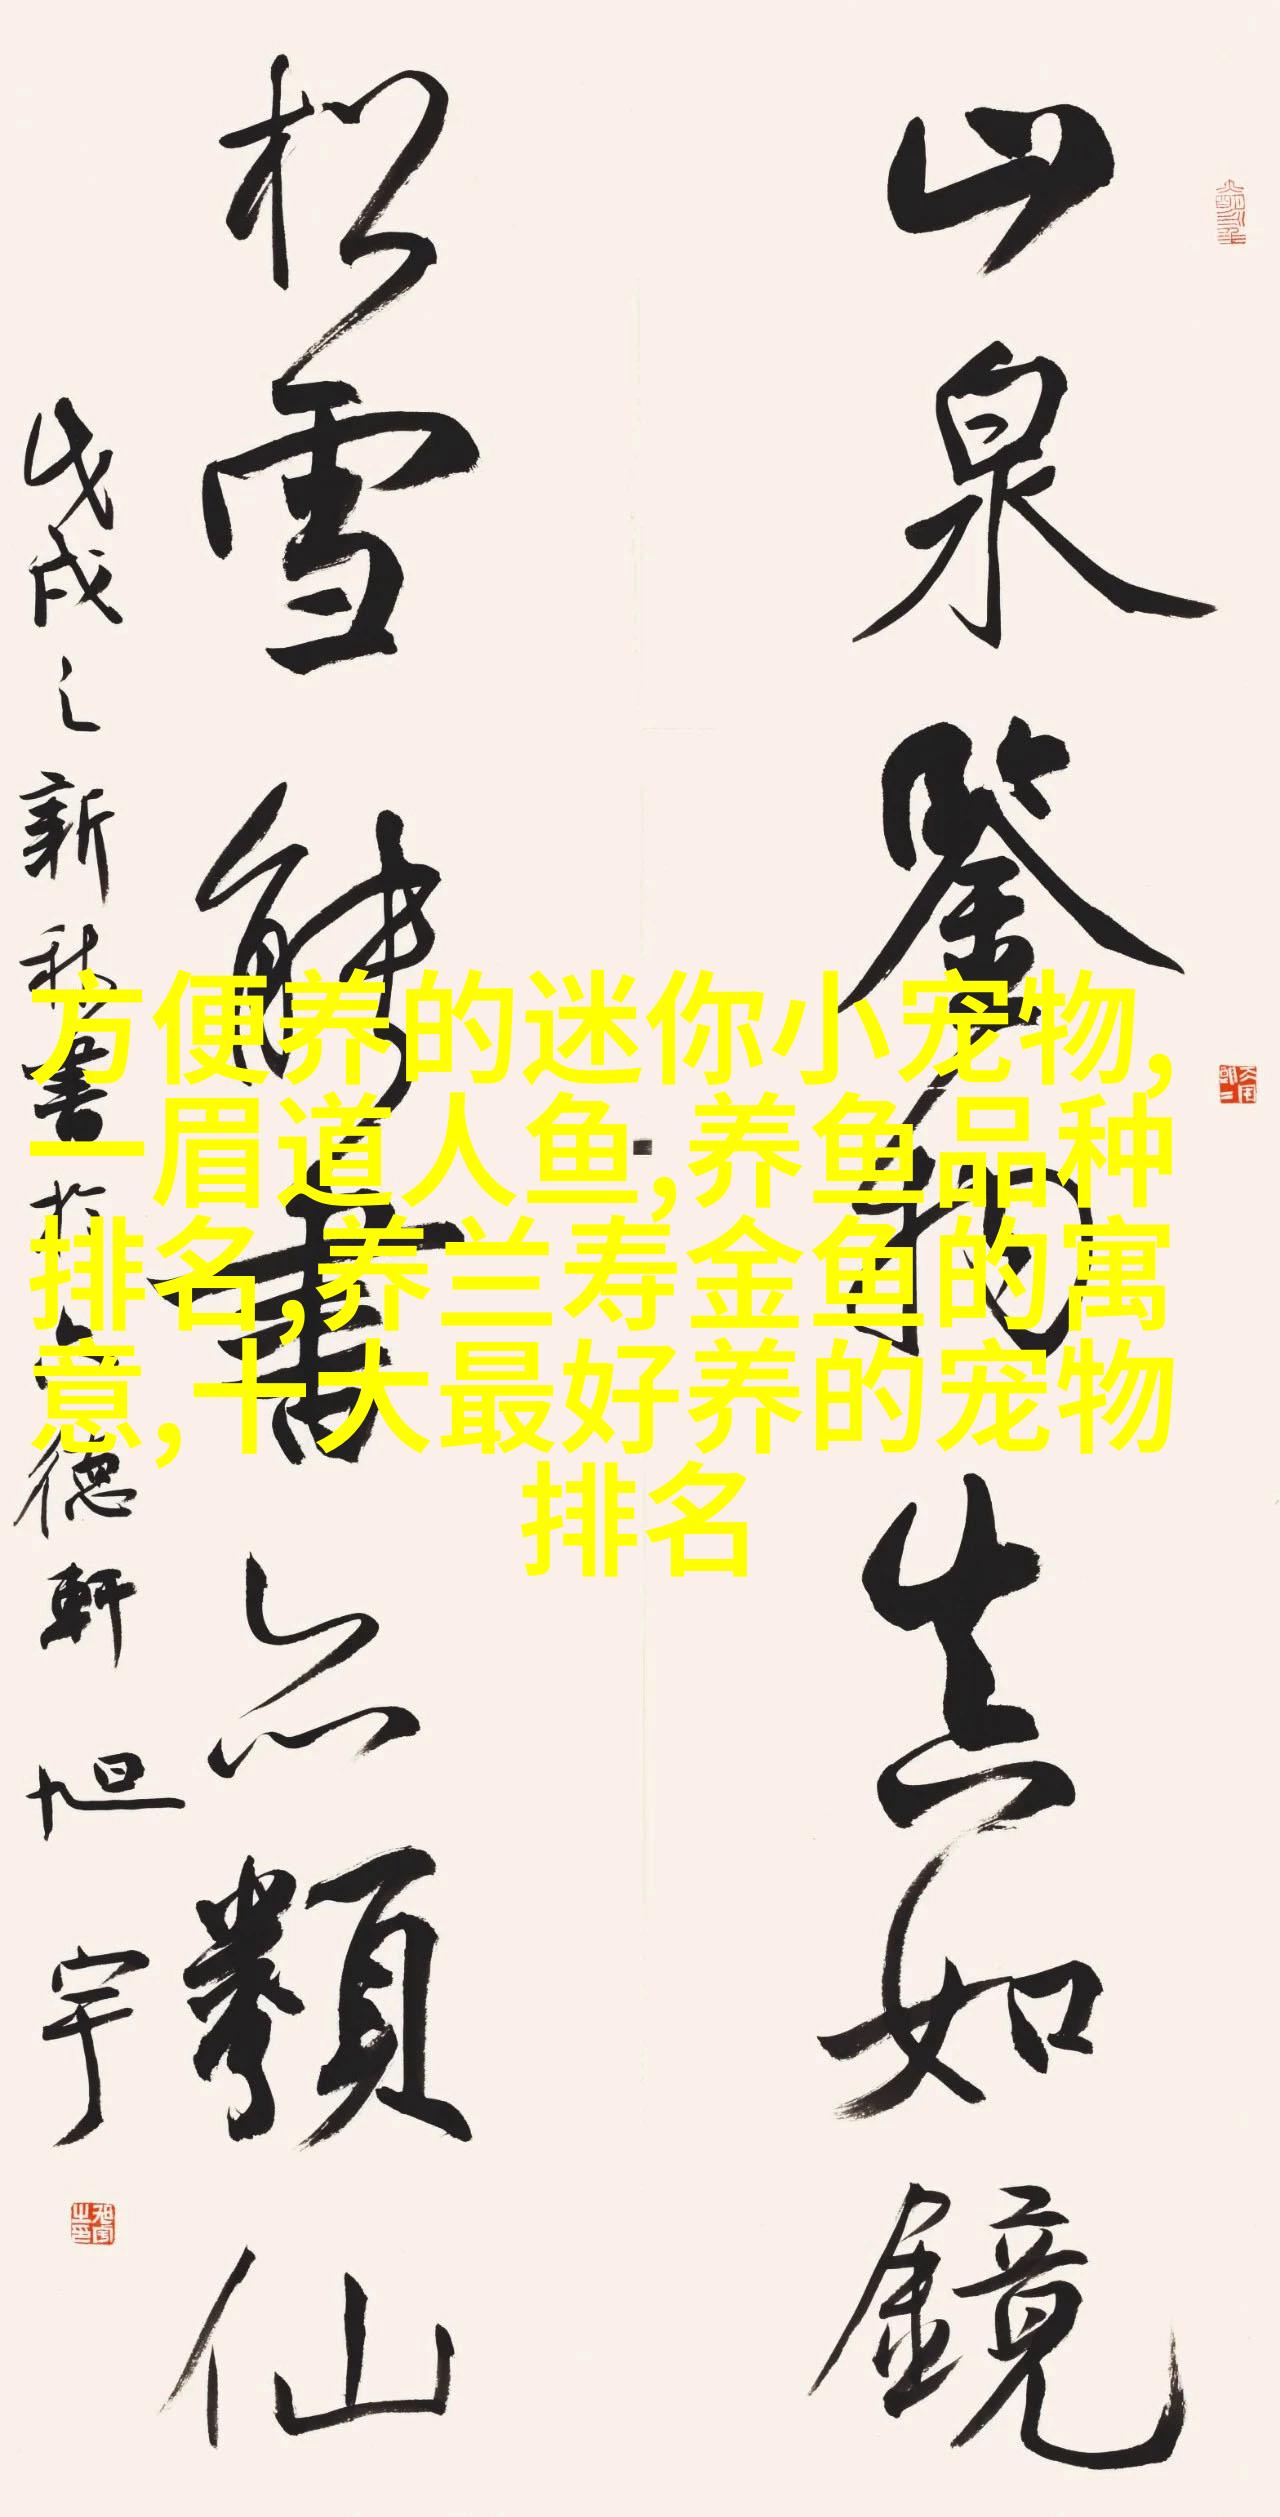 山泉鑒物真如鏡
松雪能書亦類仙
戊戌之新秋書於德軒旭宇
方便养的迷你小宠物,
一眉道人鱼,养鱼品种
排名,养兰寿金鱼的寓
意,十大最好养的宠物
排名